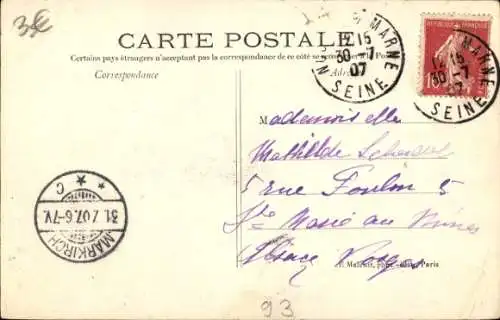 3€
CARTE POSTALE
Certains pays étrangers n'acceptant pas la correspondance de ce côté se
Correspondance
MARNE
12 15
30 -7
07
SEINE
MARNE
12 15
30 -7
07
SEINE
10
Mademoiselle
Mathilde
5 rue Foulon 5
Ste Marie aux Mines
Alsace Vosges
Paris
MARKIRCH
31.7.07.6-7V.
* * C
93